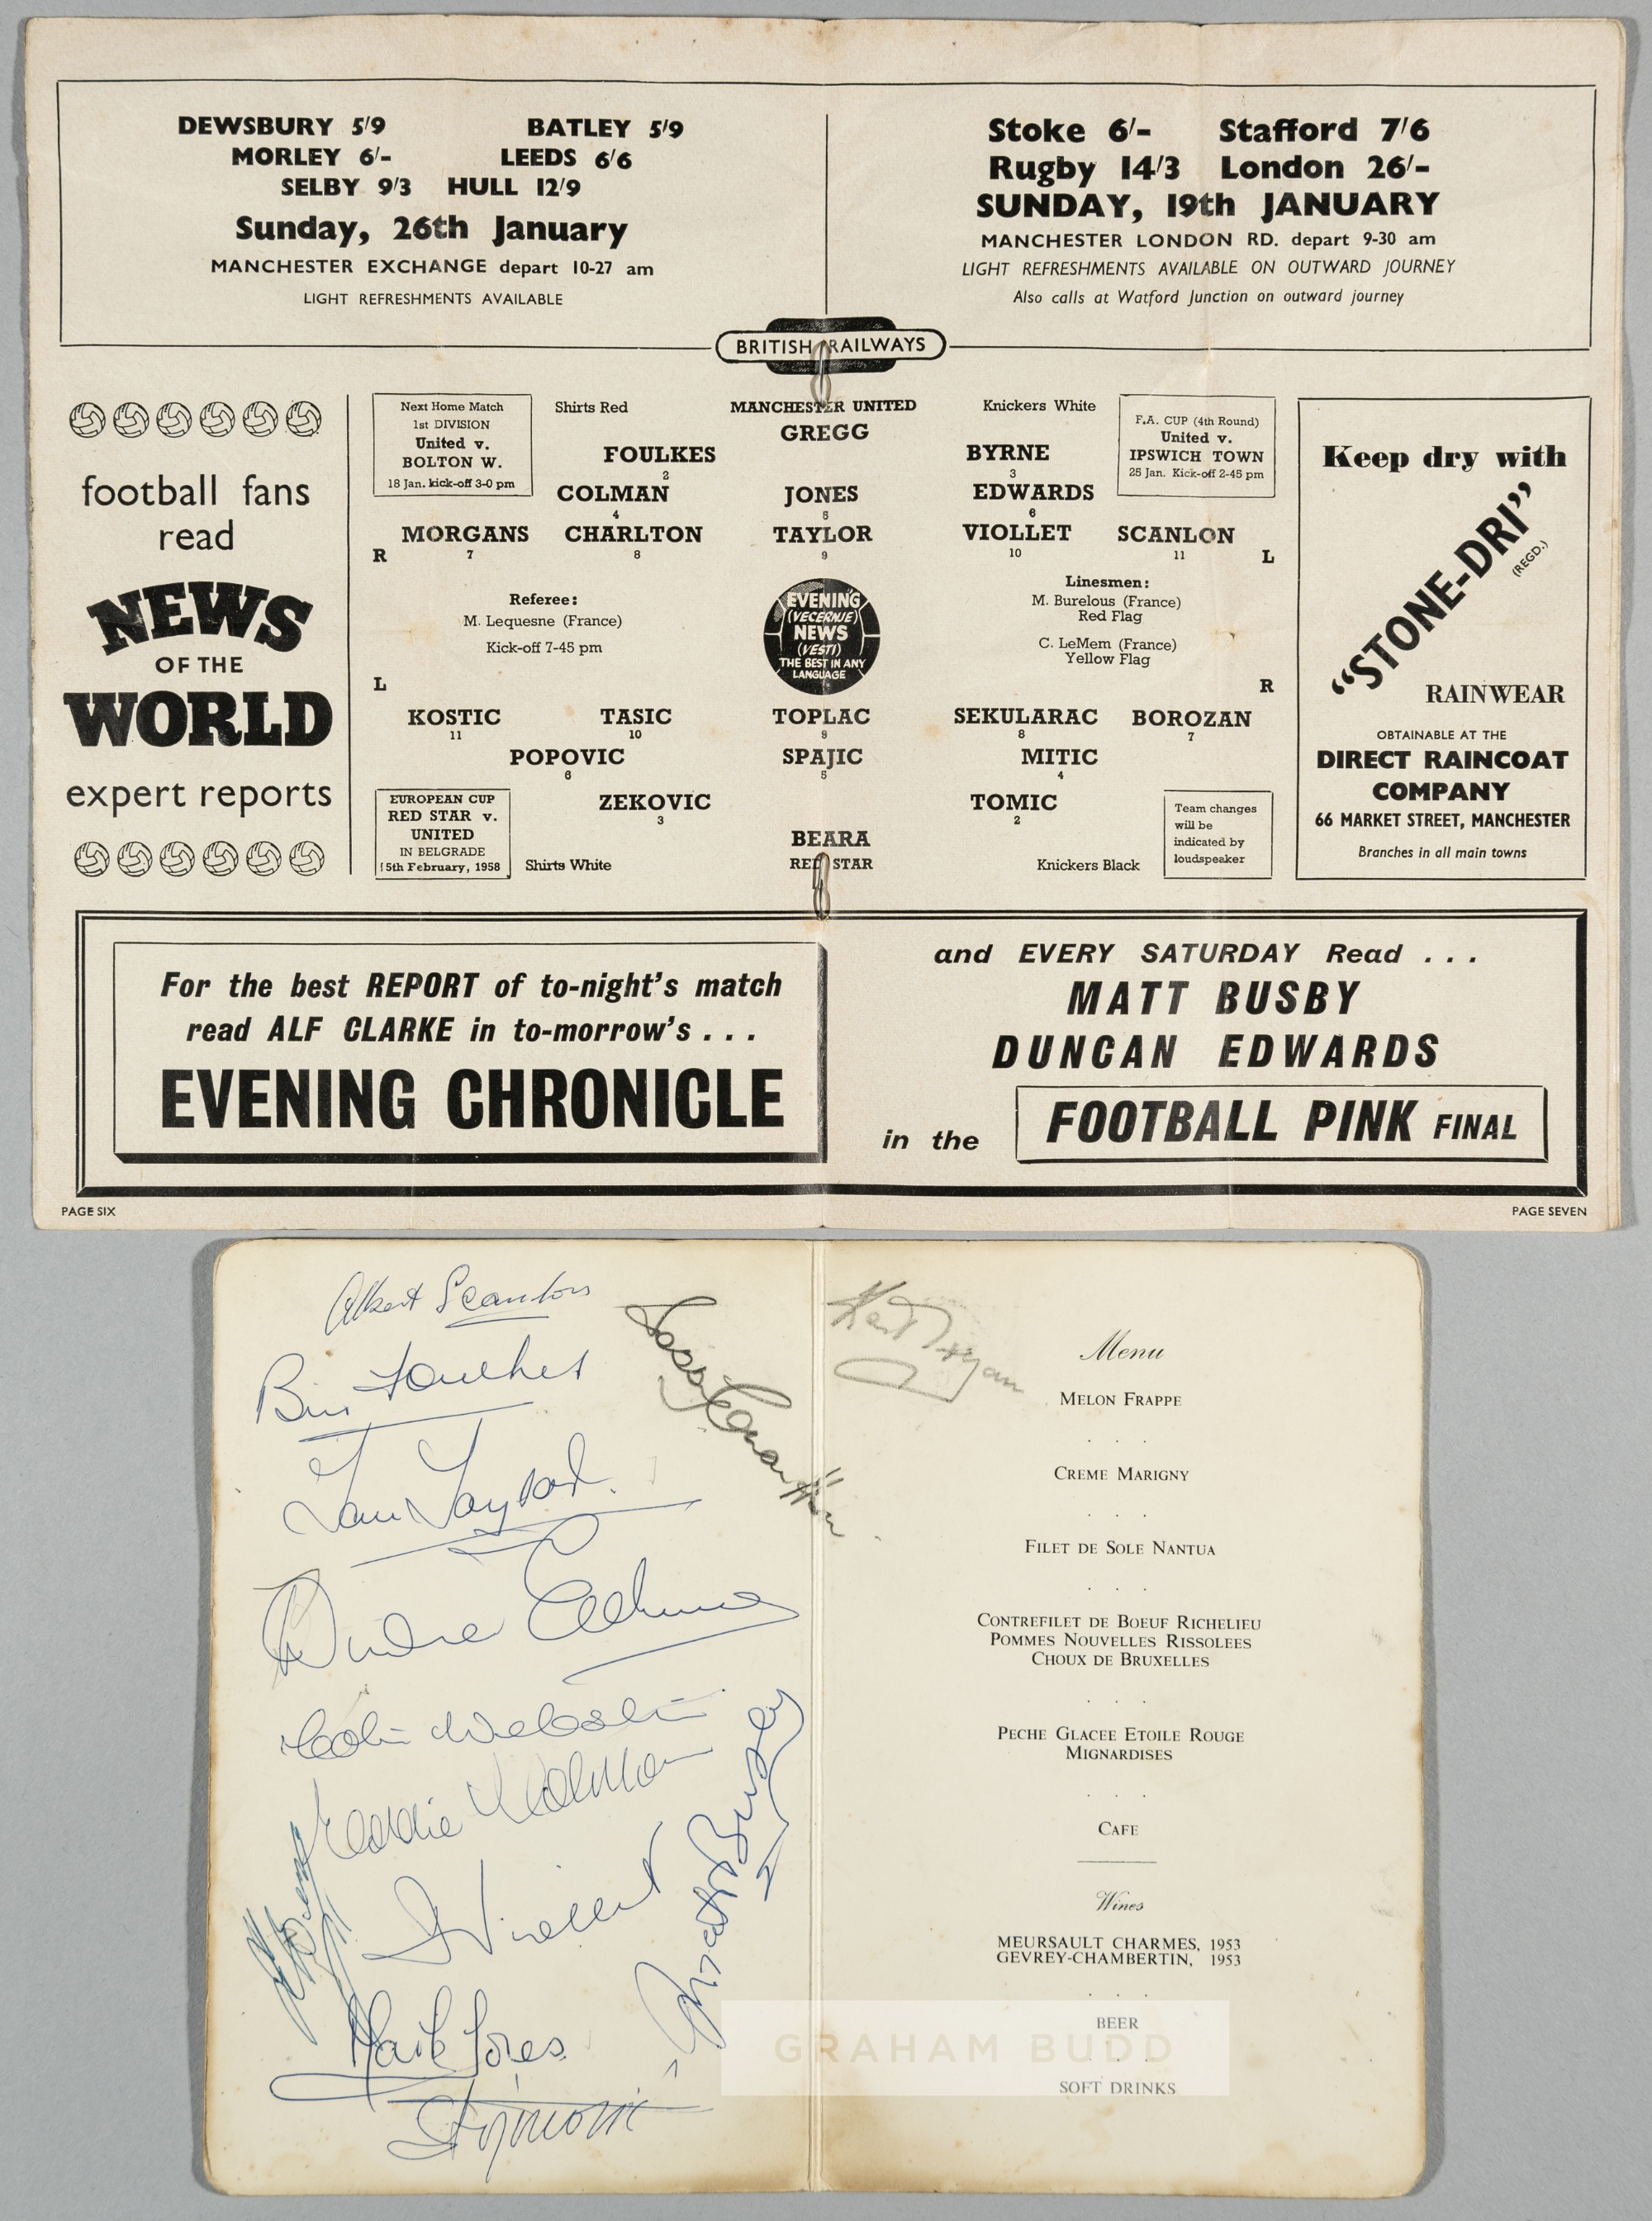 DEWSBURY 5/9 BATLEY 5/9
MORLEY 6/- LEEDS 6/6
SELBY 9/3 HULL 12/9
Sunday, 26th January
MANCHESTER EXCHANGE depart 10-27 am
LIGHT REFRESHMENTS AVAILABLE
Stoke 6/- Stafford 7/6
Rugby 14/3 London 26/-
SUNDAY, 19th JANUARY
MANCHESTER LONDON RD. depart 9-30 am
LIGHT REFRESHMENTS AVAILABLE ON OUTWARD JOURNEY
Also calls at Watford Junction on outward journey
BRITISH RAILWAYS
football fans
read
NEWS
OF THE
WORLD
expert reports
Next Home Match
1st DIVISION
United v.
BOLTON W.
18 Jan. kick-off 3-0 pm
Shirts Red
MANCHESTER UNITED
Knickers White
F.A. CUP (4th Round)
United v.
IPSWICH TOWN
25 Jan. Kick-off 2-45 pm
GREGG
FOULKES BYRNE
2 3
COLMAN JONES EDWARDS
4 5 6
MORGANS CHARLTON TAYLOR VIOLLET SCANLON
R 7 8 9 10 11 L
Referee:
M. Lequesne (France)
Kick-off 7-45 pm
EVENING
(VECERNJE)
NEWS
(VESTI)
THE BEST IN ANY
LANGUAGE
Linesmen:
M. Burelous (France)
Red Flag
C. LeMem (France)
Yellow Flag
L R
KOSTIC TASIC TOPLAC SEKULARAC BOROZAN
11 10 9 8 7
POPOVIC SPAJIC MITIC
6 5 4
ZEKOVIC TOMIC
3 2
BEARA
RED STAR
EUROPEAN CUP
RED STAR v.
UNITED
IN BELGRADE
5th February, 1958
Shirts White
Knickers Black
Team changes
will be
indicated by
loudspeaker
Keep dry with
"STONE-DRI"
(REGD.)
RAINWEAR
OBTAINABLE AT THE
DIRECT RAINCOAT
COMPANY
66 MARKET STREET, MANCHESTER
Branches in all main towns
For the best REPORT of to-night's match
read ALF CLARKE in to-morrow's . . .
EVENING CHRONICLE
and EVERY SATURDAY Read . . .
MATT BUSBY
DUNCAN EDWARDS
in the FOOTBALL PINK FINAL
PAGE SIX
PAGE SEVEN
Albert Scanlon
Bill Foulkes
Tom Taylor
Duncan Edwards
Colin Webster
Eddie Colman
D Viollet
Mark Jones
Matt Busby
Menu
MELON FRAPPE
. . .
CREME MARIGNY
. . .
FILET DE SOLE NANTUA
. . .
CONTREFILET DE BOEUF RICHELIEU
POMMES NOUVELLES RISSOLEES
CHOUX DE BRUXELLES
. . .
PECHE GLACEE ETOILE ROUGE
MIGNARDISES
. . .
CAFE
Wines
MEURSAULT CHARMES, 1953
GEVREY-CHAMBERTIN, 1953
. . .
BEER
GRAHAM BUDD
SOFT DRINKS